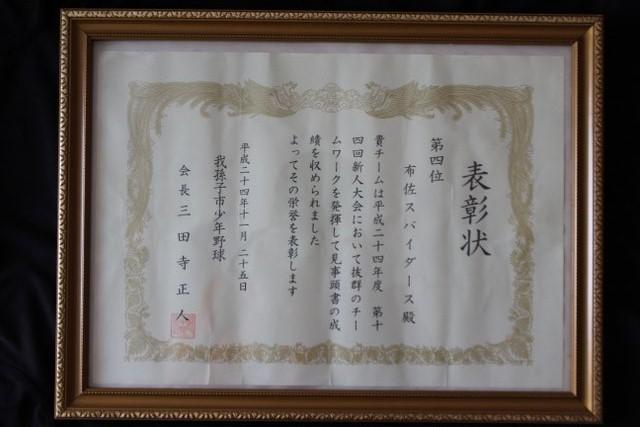 表彰状
第四位
布佐スパイダース殿
貴チームは平成二十四年度 第十
四回新人大会において抜群のチー
ムワークを発揮して見事頭書の成
績を収められました
よってその栄誉を表彰します
平成二十四年十一月二十五日
我孫子市少年野球
会長 三田寺正人